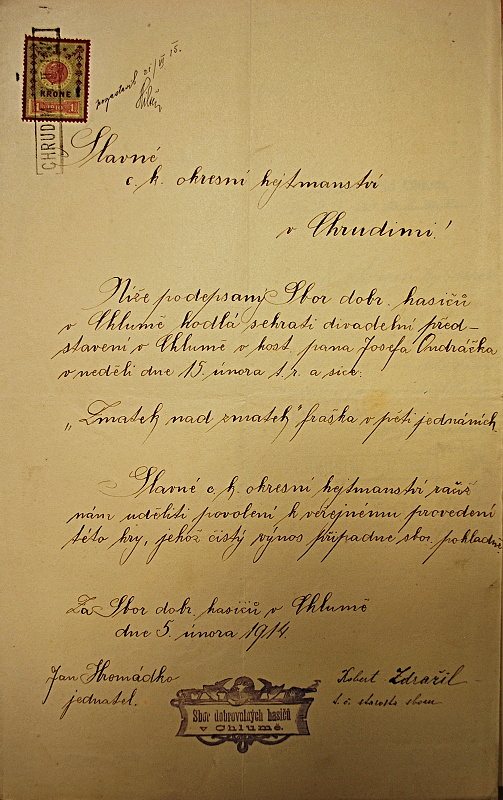 KRONE
1
CHRUD
21/VI 15.
Slavné
c. k. okresní hejtmanství
v Chrudimi!
Níže podepsaný Sbor dobr. hasičů
v Chlumě hodlá sehrati divadelní před-
stavení v Chlumě v host. pana Josefa Ondráčka
v neděli dne 15. února t. r. a sice:
„Zmatek nad zmatek" fraška v pěti jednáních.
Slavné c. k. okresní hejtmanství račiž
nám uděliti povolení k veřejnému provedení
této hry, jehož čistý výnos případne sbor. pokladně.
Za Sbor dobr. hasičů v Chlumě
dne 5. února 1914.
Jan Hromádko
jednatel.
Robert Zdražil
t. č. starosta sboru
Sbor dobrovolných hasičů
v Chlumě.